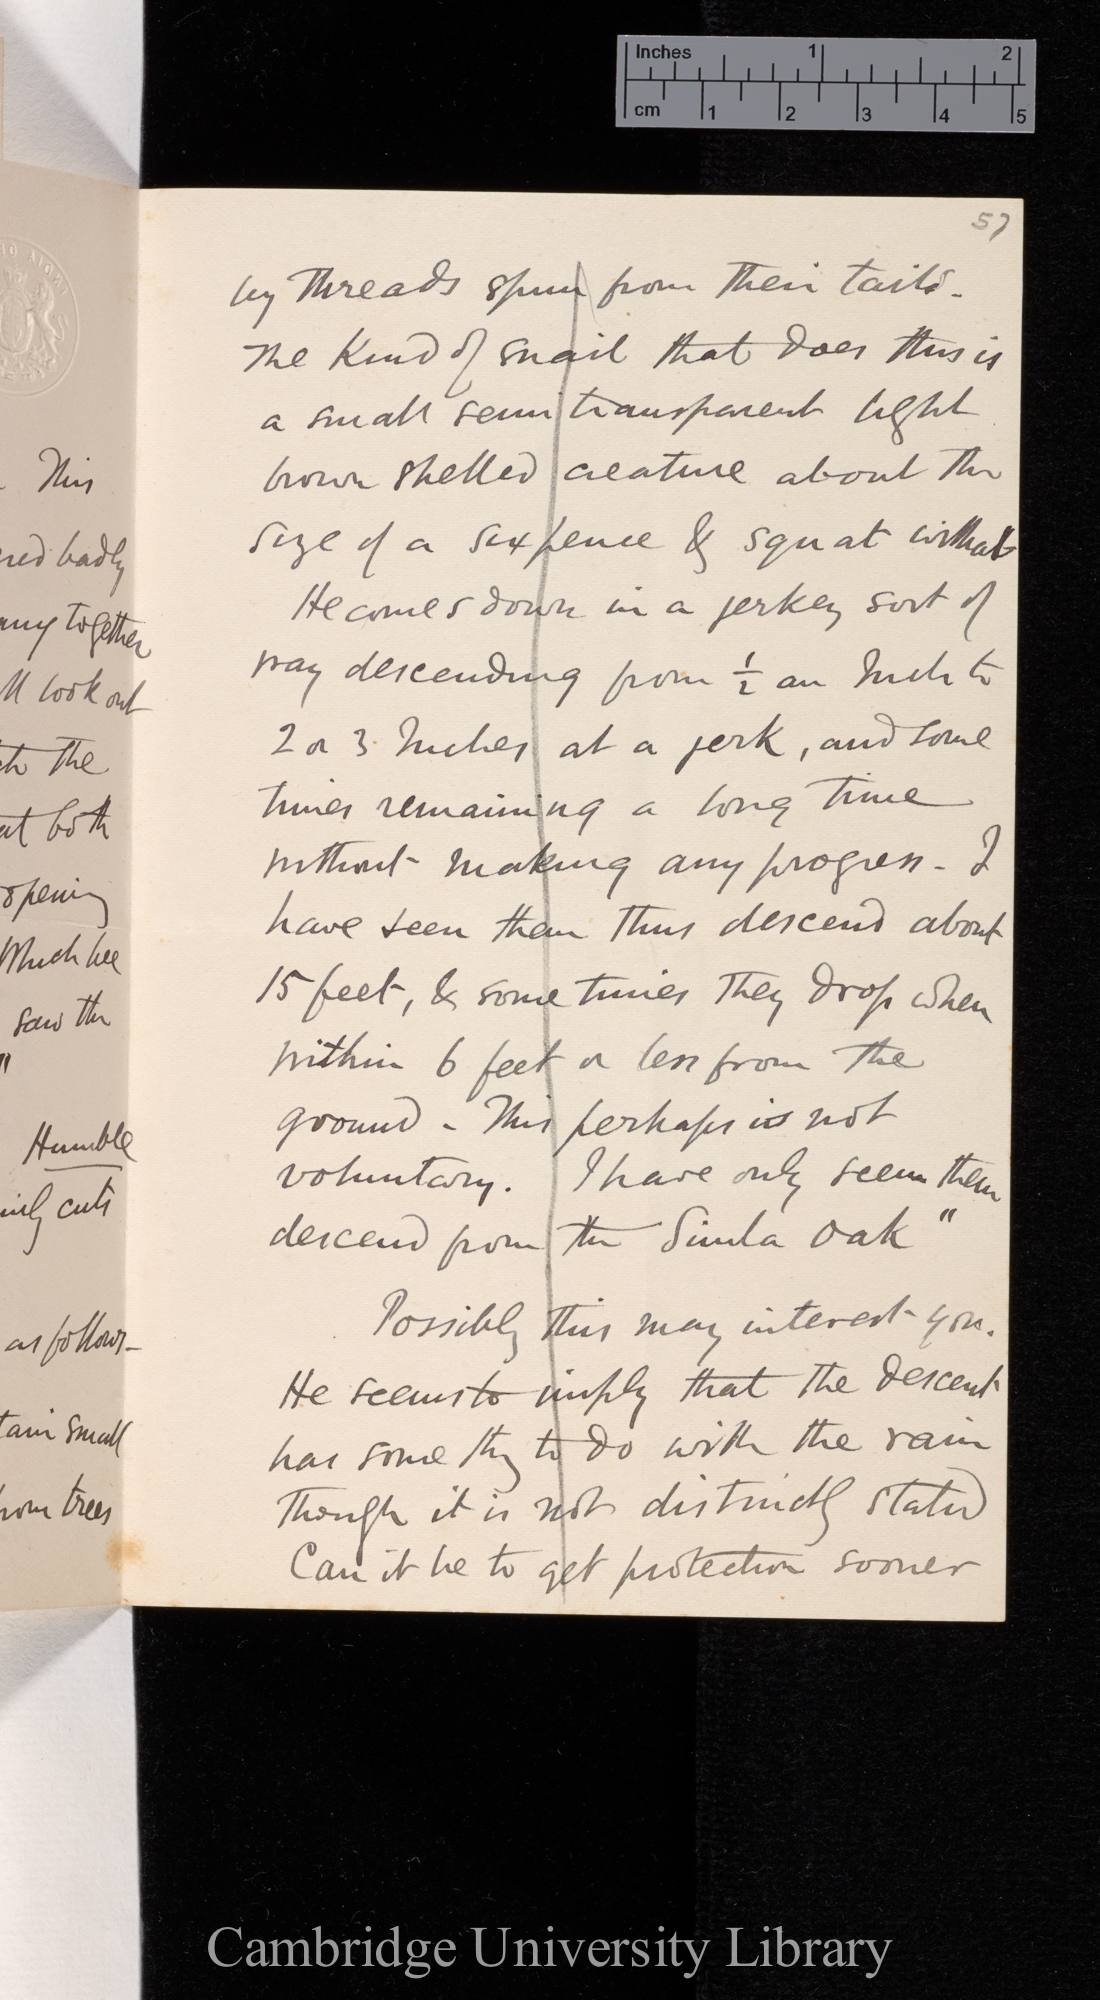 Inches 1 2
cm 1 2 3 4 5
57
by threads spun from their tails.
The kind of snail that does this is
a small semi transparent light
brown shelled creature about the
size of a sixpence & squat withal
He comes down in a jerkey sort of
way descending from ½ an Inch to
2 or 3 Inches at a jerk, and some
times remaining a long time
without making any progress - I
have seen them thus descend about
15 feet, & some times they drop when
within 6 feet or less from the
ground - This perhaps is not
voluntary. I have only seen them
descend from the Simla Oak"
Possibly this may interest you.
He seems to imply that the descent
has some thg to do with the rain
though it is not distinctly stated
Can it be to get protection sooner
This
badly
together
look out
the
at both
opening
saw the
"
Humble
cuts
as follows -
small
from trees
Cambridge University Library